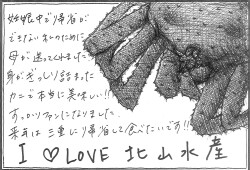 妊娠中で帰省が
できないわたしのために
母が送ってくれました。
身がぎっしり詰まった
カニで本当に美味しい!!
すっかりファンになりました。
来年は三重に帰省して食べたいです!!
I ♡ LOVE 北山水産